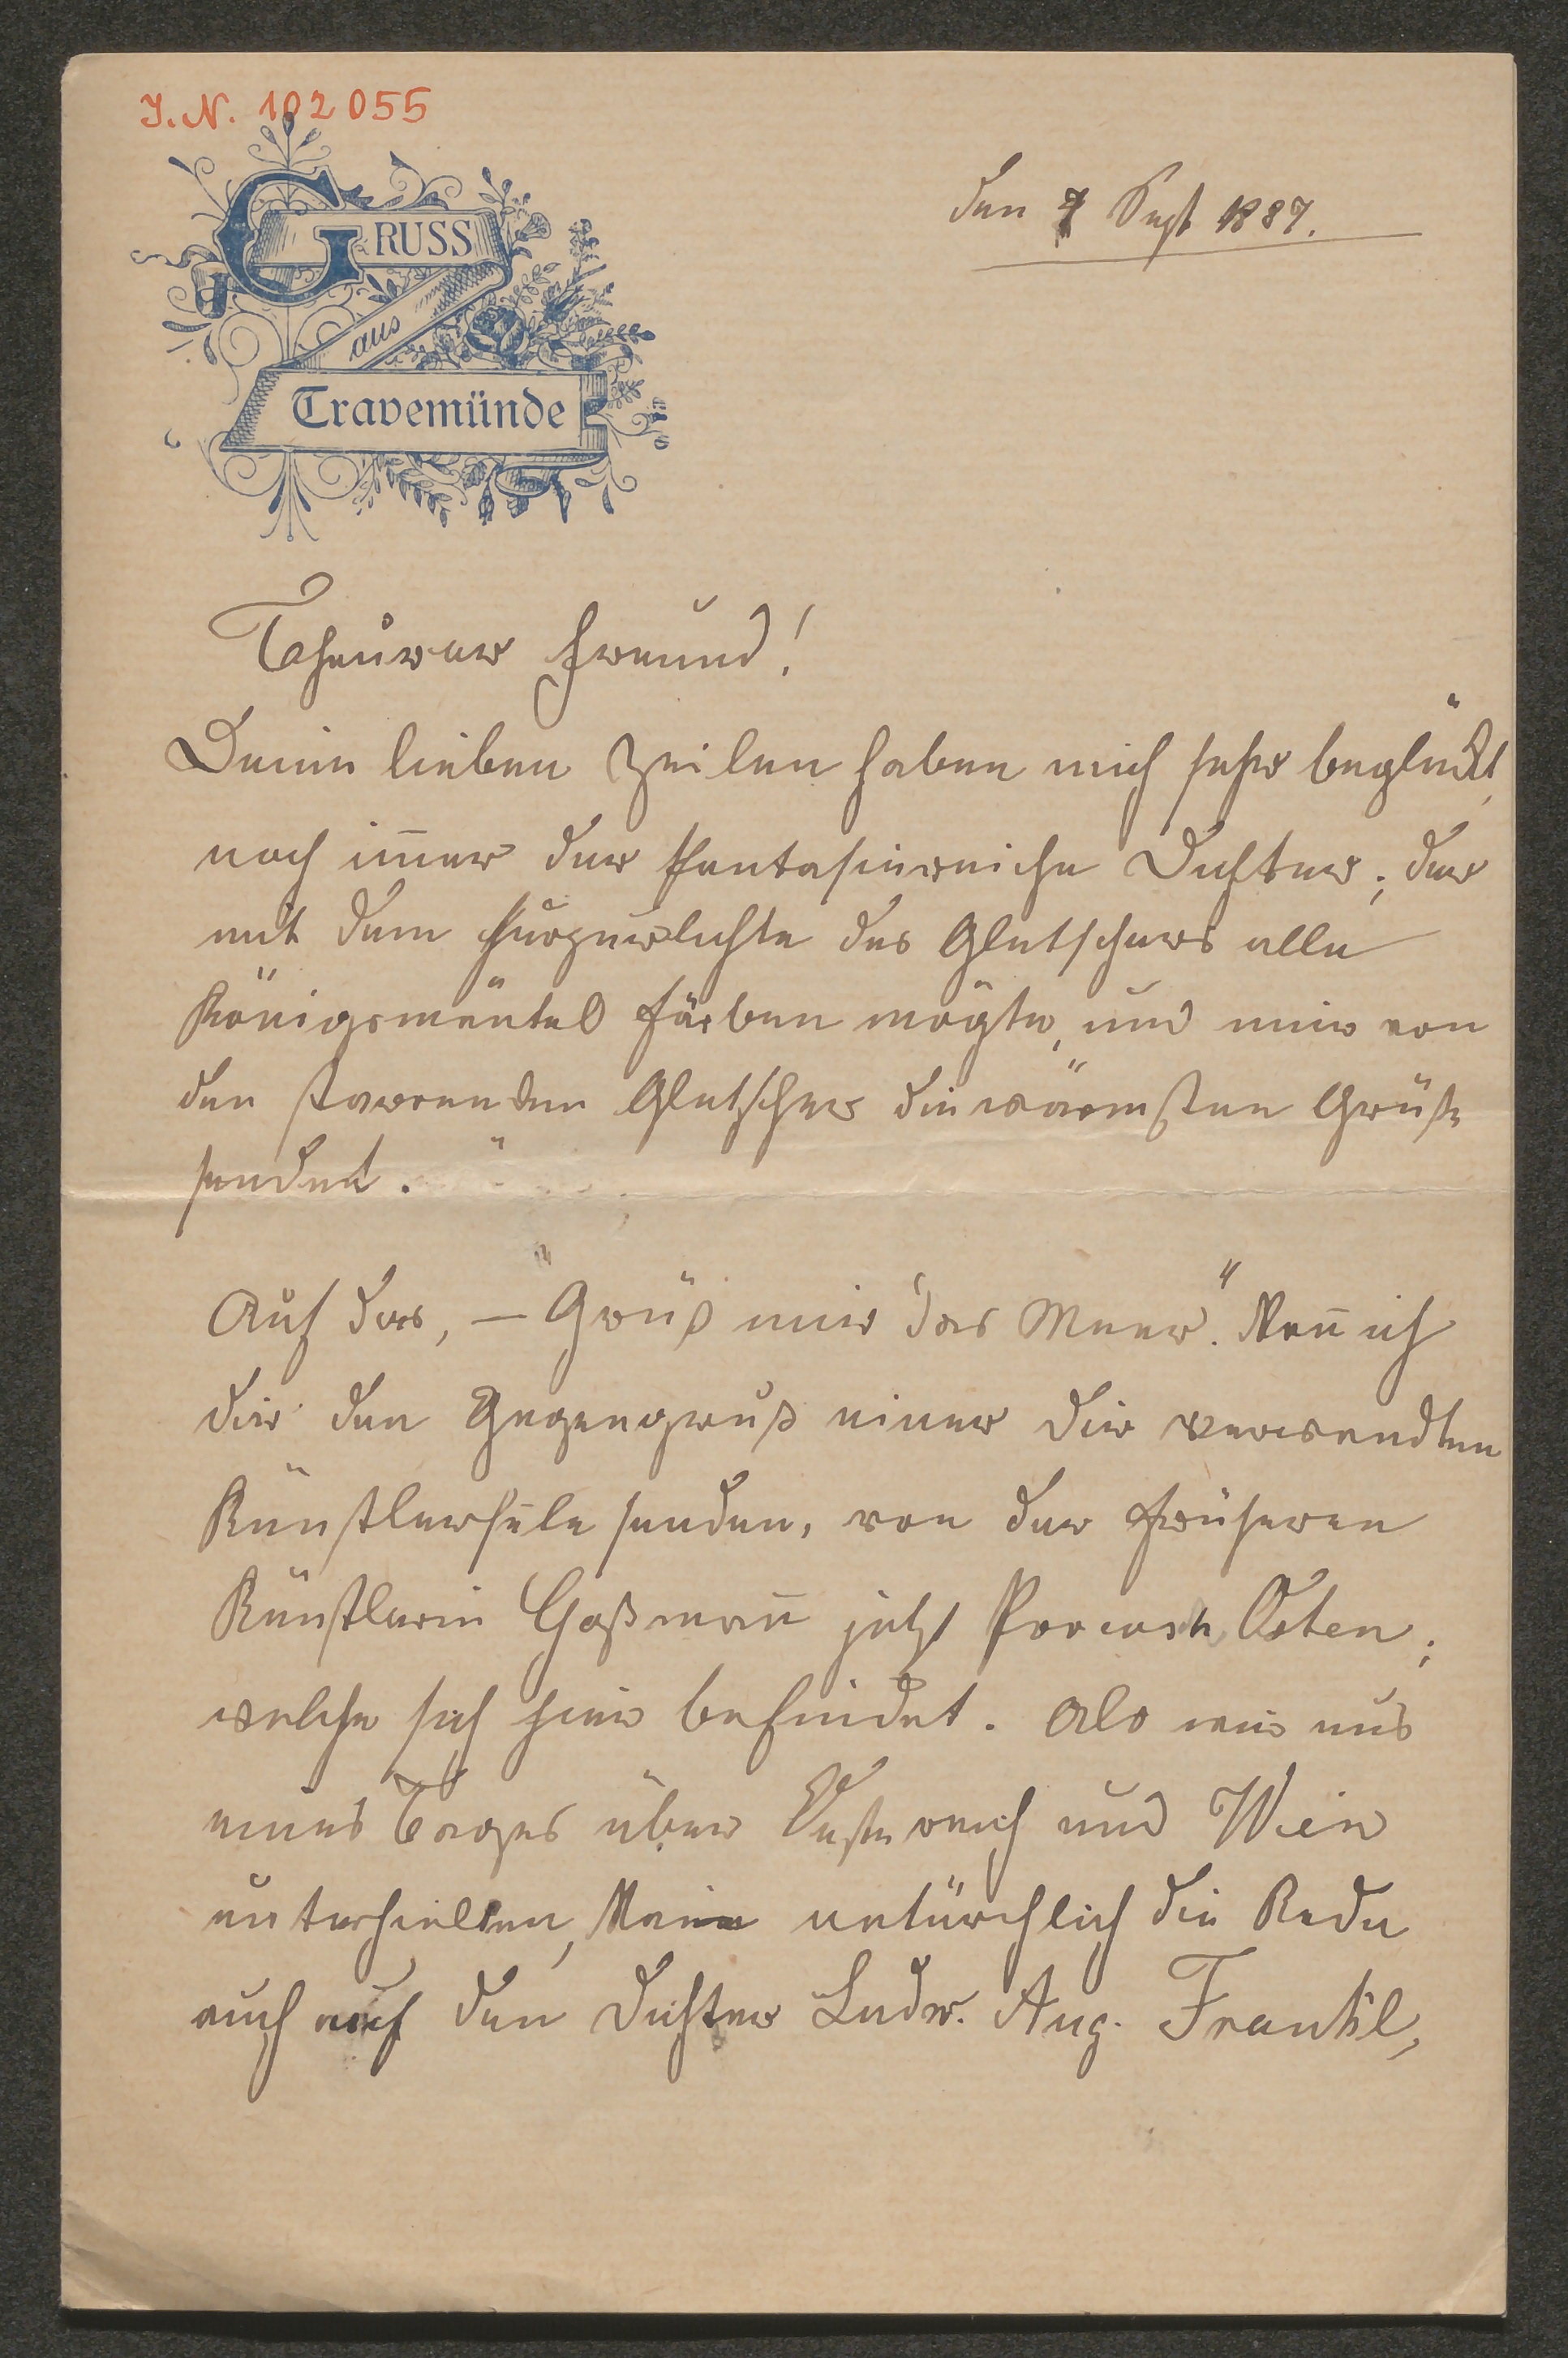 I.N. 102055
GRUSS
aus
Travemünde
den 7 Sept 1887.
Theurer Freund!
Deine lieben Zeilen haben mich sehr beglückt,
noch im̄er der fantasiereiche Dichter; der
mit dem Purpurlichte des Gletschers alle
Königsmäntel färben mögte, und mir von
den starrenden Gletscher die wärmsten Grüße
sendet.
Auf das, — "Grüß mir das Meer". Kan̄ ich
dir den Gegengruß einer dir verwandten
Künstlersele senden, von der früheren
Künstlerin Goßman̄ jetzt Prokesch Osten;
welche sich hier befindet. Als wir uns
eines Tages über Östereich und Wien
unterhielten, natürchlich die Rede
auch auf den Dichter Ludw. Aug. Frankl,